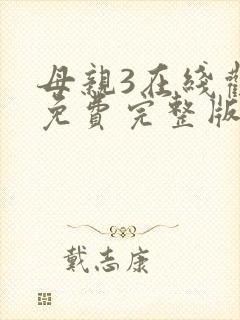 母親3在綫觀
免費完整版
戴志康